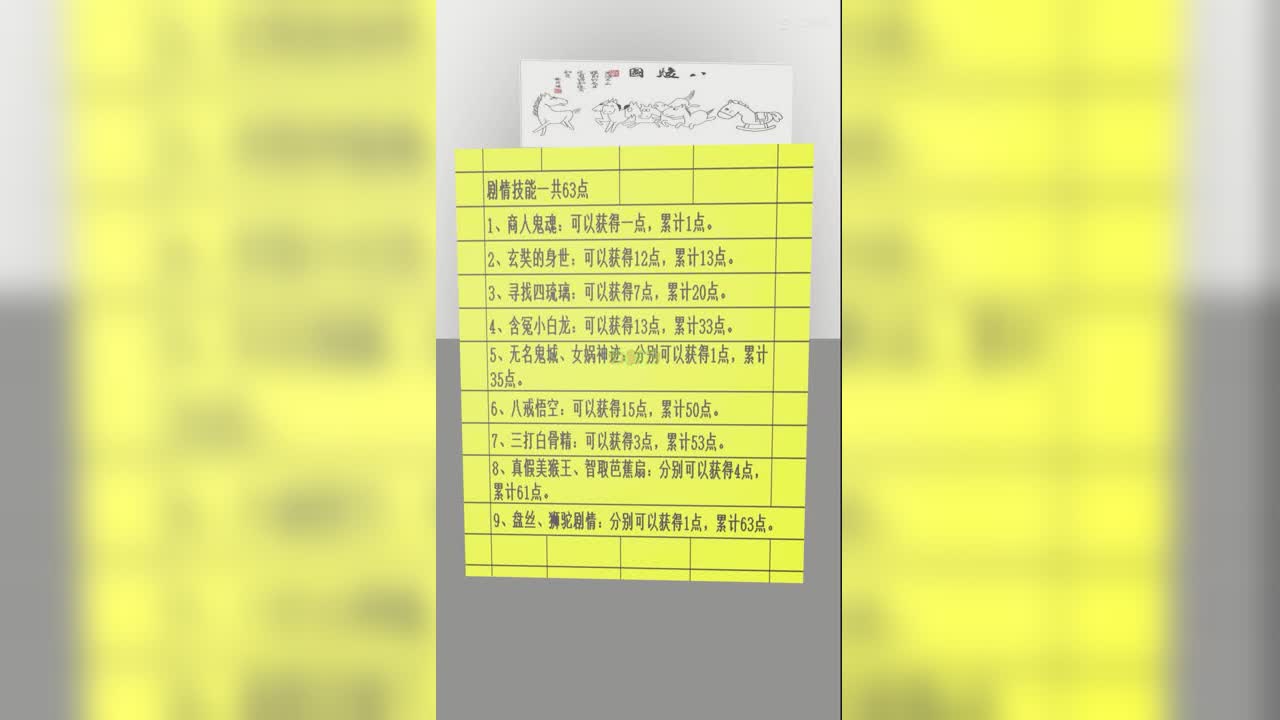 剧情技能一共63点
1、商人鬼魂：可以获得一点，累计1点。
2、玄奘的身世：可以获得12点，累计13点。
3、寻找四琉璃：可以获得7点，累计20点。
4、含冤小白龙：可以获得13点，累计33点。
5、无名鬼城、女娲神迹：分别可以获得1点，累计
35点。
6、八戒悟空：可以获得15点，累计50点。
7、三打白骨精：可以获得3点，累计53点。
8、真假美猴王、智取芭蕉扇：分别可以获得4点，
累计61点。
9、盘丝、狮驼剧情：分别可以获得1点，累计63点。